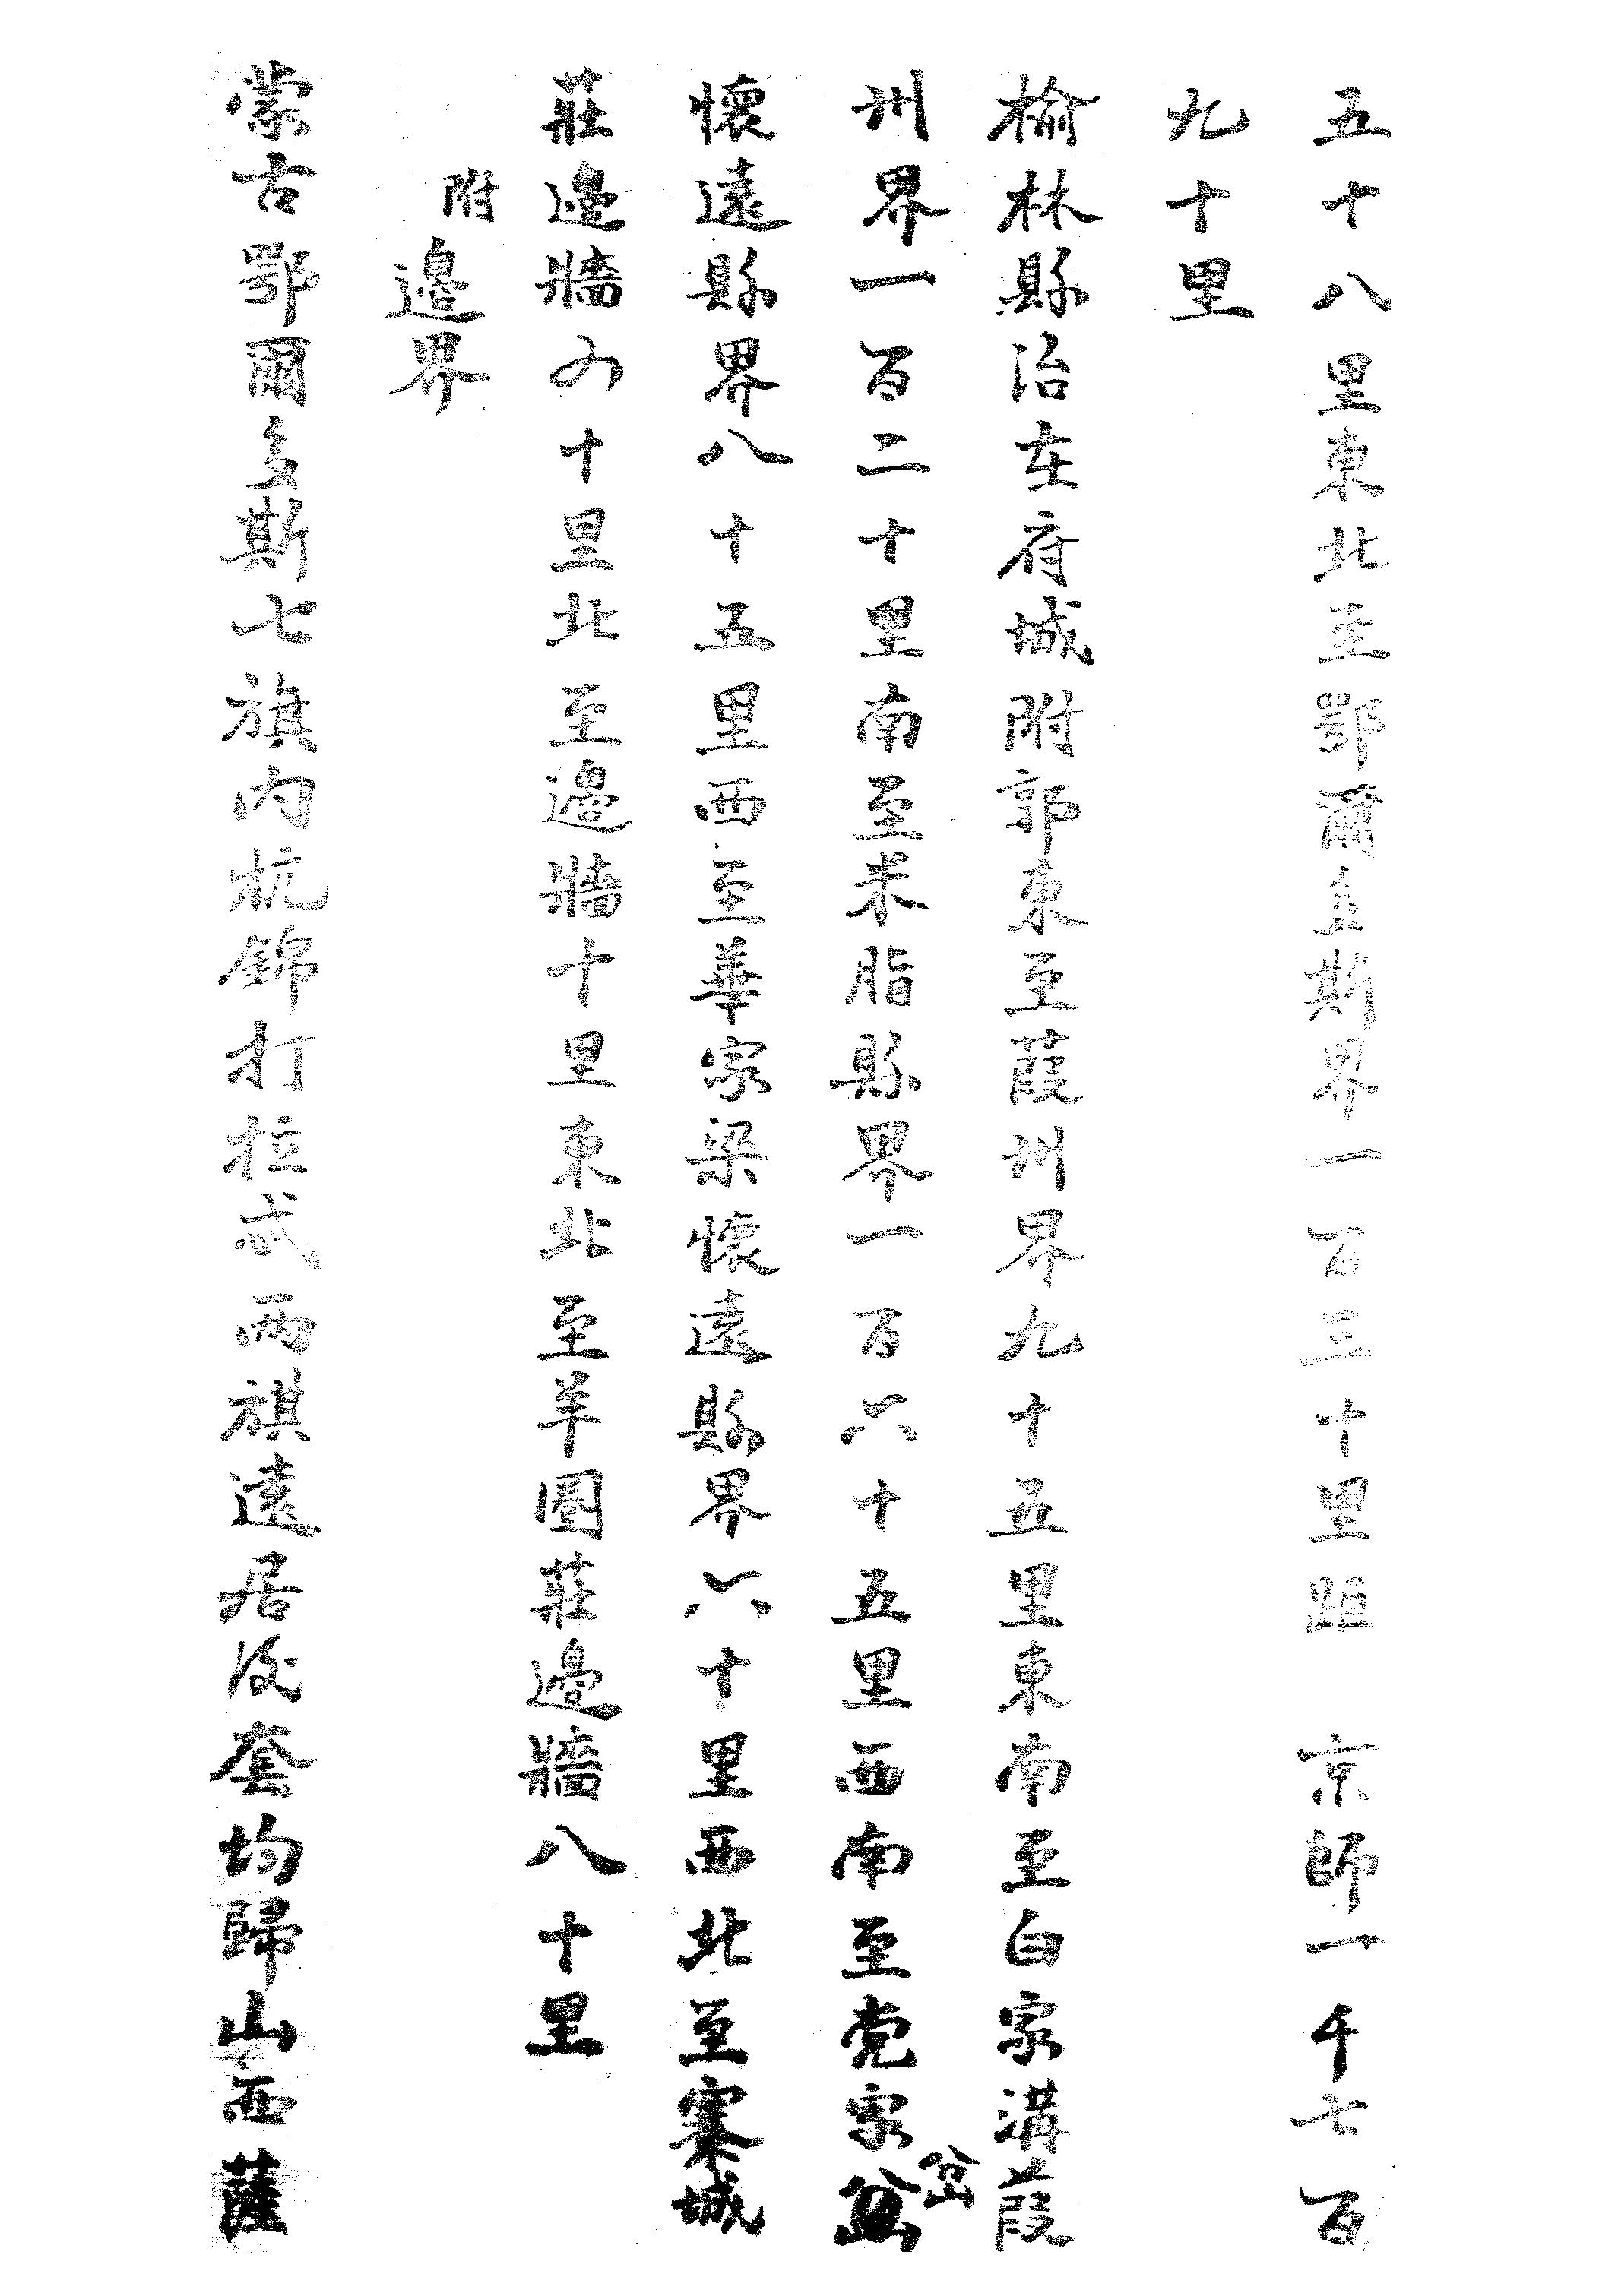 五十八里東北至鄂爾多斯界一百三十里距　京師一千七百
九十里
榆林縣治在府城附郭東至葭州界九十五里東南至白家溝葭
州界一百二十里南至米脂縣界一百六十五里西南至党家岔
岔
懷遠縣界八十五里西至華家梁懷遠縣界六十里西北至寨城
莊邊牆九十里北至邊牆十里東北至羊圈莊邊牆八十里
附邊界
蒙古鄂爾多斯七旗內杭錦打拉忒兩旗遠居後套均歸山西薩